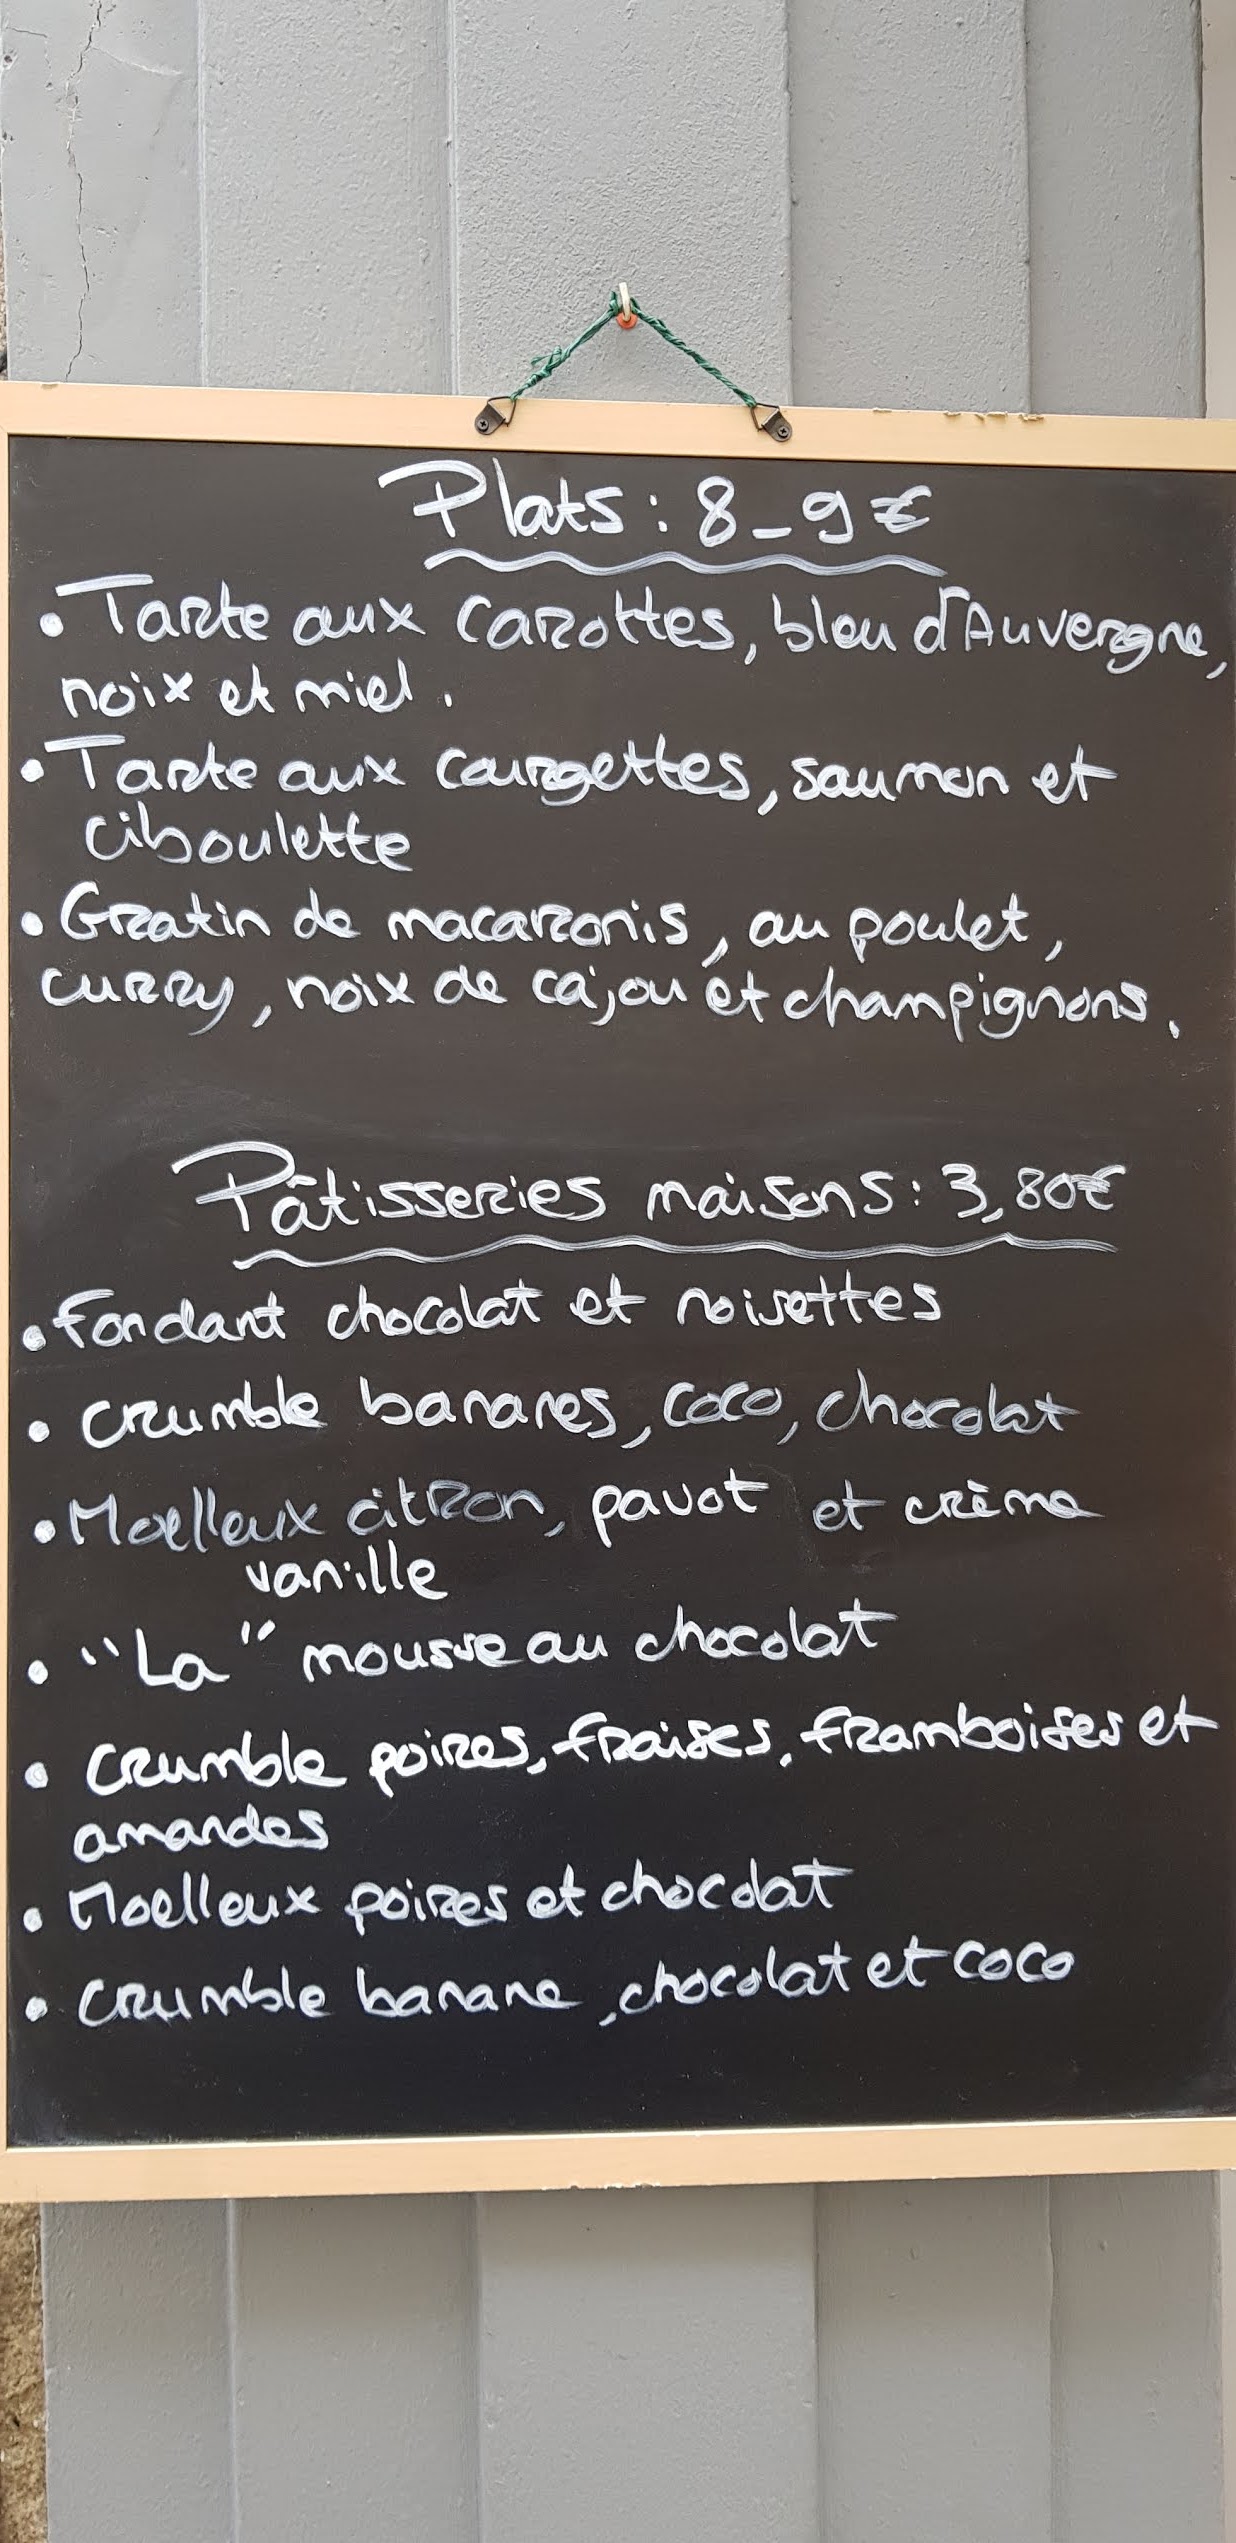 Plats : 8-9€
• Tarte aux carottes, bleu d'Auvergne,
noix et miel.
• Tarte aux courgettes, saumon et
ciboulette
• Gratin de macaronis, au poulet,
curry, noix de cajou et champignons.
Pâtisseries maisons : 3,80€
• Fondant chocolat et noisettes
• Crumble bananes, coco, chocolat
• Moelleux citron, pavot et crème
vanille
• "La" mousse au chocolat
• Crumble poires, fraises, framboises et
amandes
• Moelleux poires et chocolat
• Crumble banane, chocolat et coco